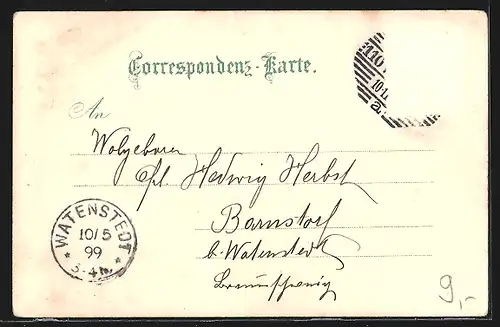 Correspondenz-Karte.
110
An
Wolgeboren
Frl. Hedwig Herbst
Barnstorf
b. Watenstedt
Braunschweig
WATENSTEDT
10/5
99
* 3-4N. *
9,-